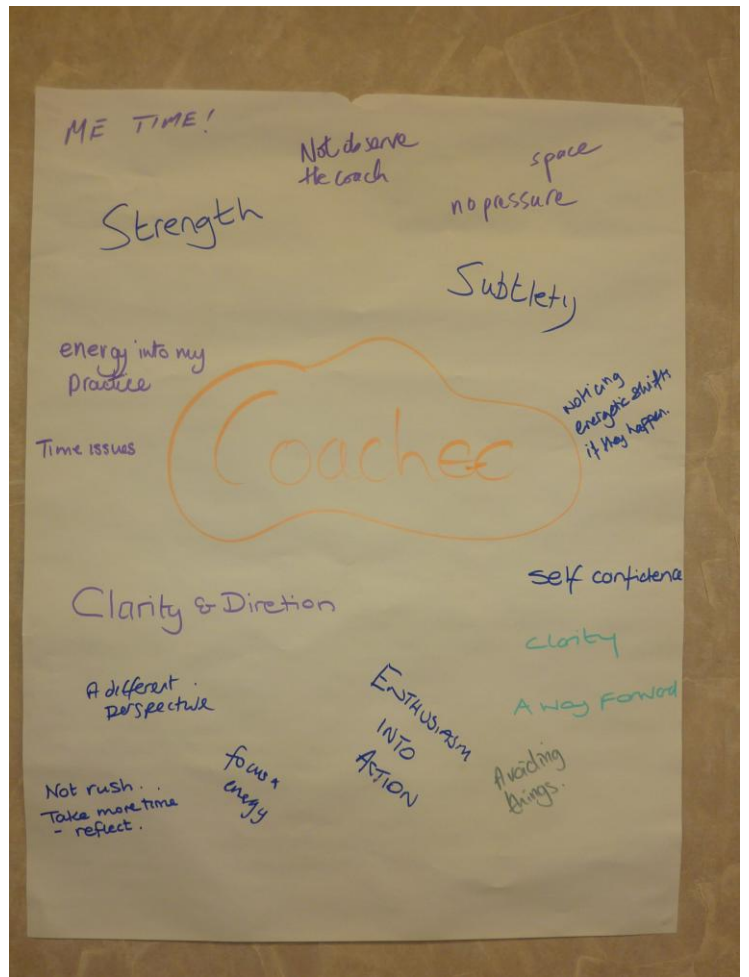 ME TIME!
Not observe
the coach
space
no pressure
Strength
Subtlety
energy into my
practice
Noticing
energetic shifts
if they happen.
Time issues
Coachee
Self confidence
Clarity & Diretion
Clarity
A different
perspective
A way forward
ENTHUSIASM
INTO
ACTION
focus &
energy
Avoiding
things.
Not rush..
Take more time
- reflect.